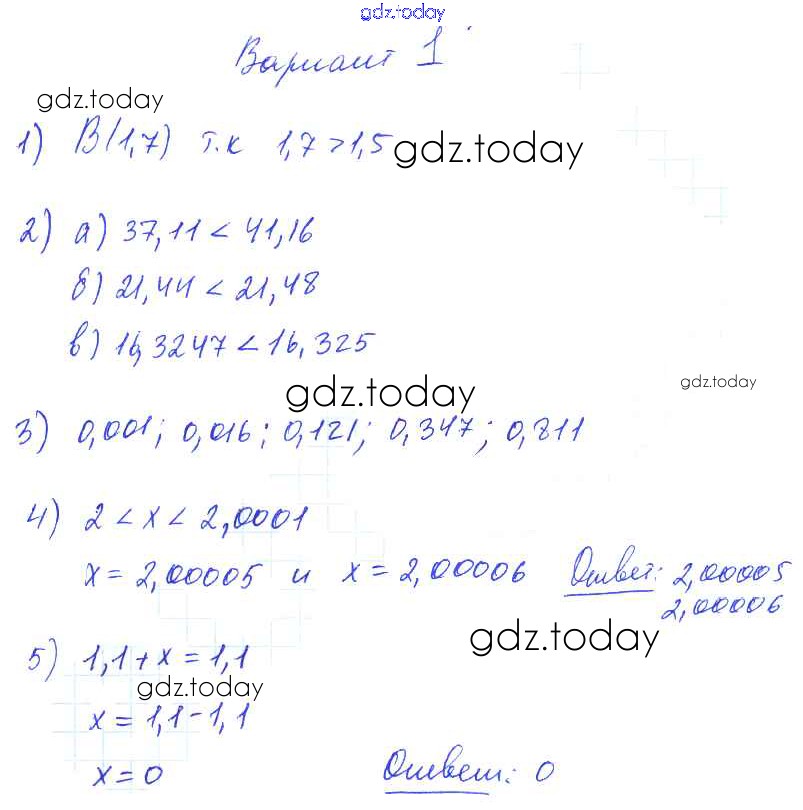 gdz.today
Вариант 1
gdz.today
1) В(1,7) т.к 1,7>1,5 gdz.today
2) а) 37,11 < 41,16
б) 21,44 < 21,48
в) 16,3247 < 16,325
gdz.today gdz.today
3) 0,001; 0,016; 0,121; 0,347; 0,811
4) 2 < x < 2,0001
x = 2,00005 и x = 2,00006 Ответ: 2,00005
2,00006
gdz.today
5) 1,1 + x = 1,1
gdz.today
x = 1,1 - 1,1
x = 0 Ответ: 0